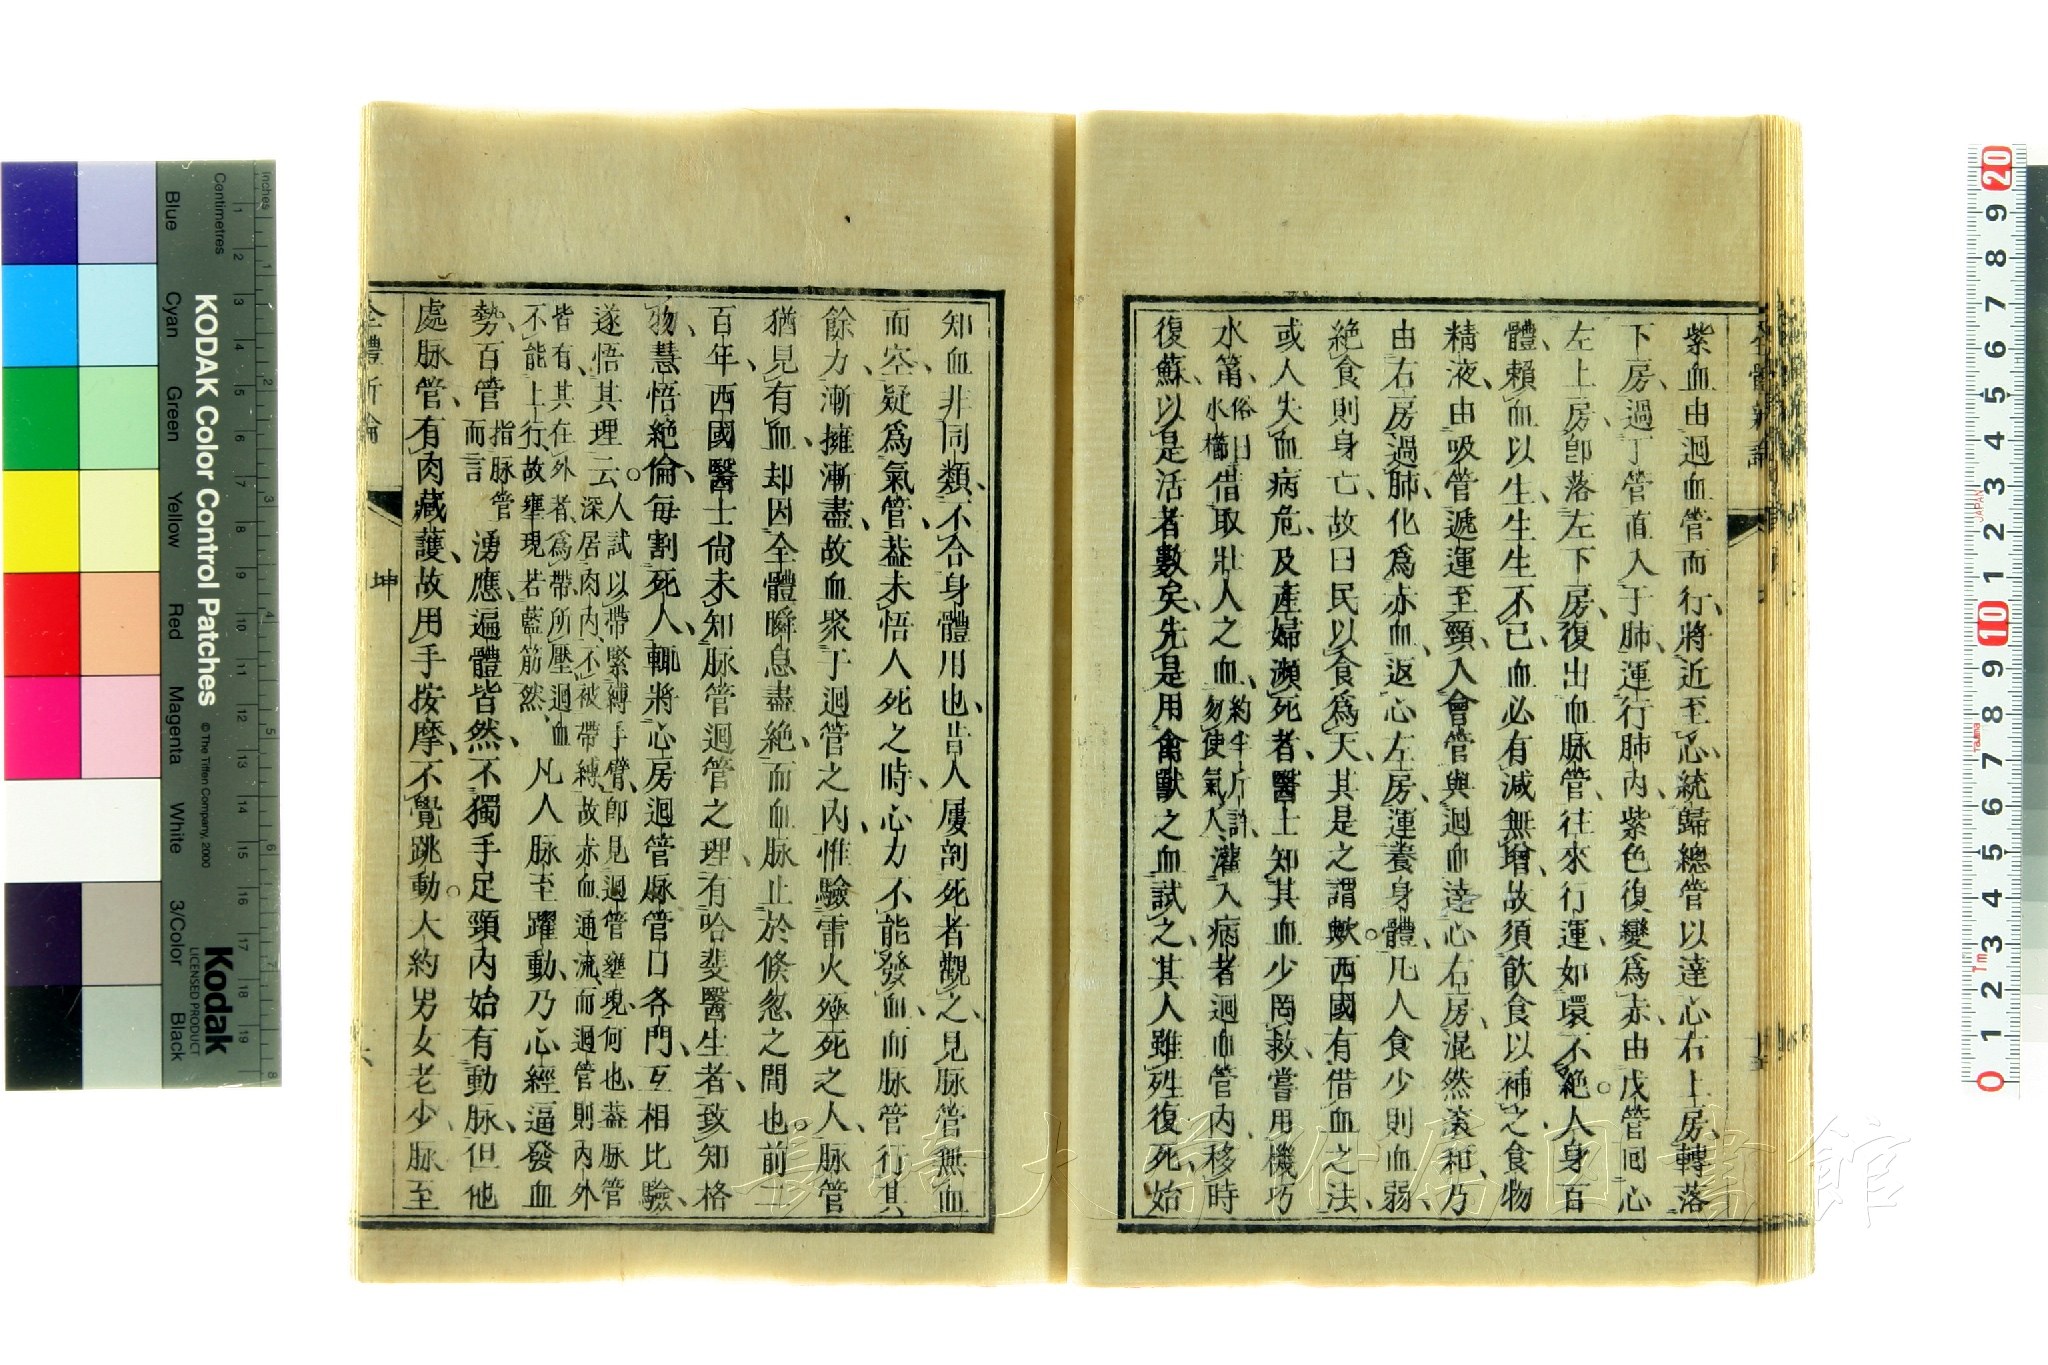 紫血由迴血管而行、將近至心、統歸總管以達心右上房、轉落
下房、過丁管直入于肺、運行肺內、紫色復變爲赤、由戊管回心
左上房、卽落左下房、復出血脉管、往來行運、如環不絕。人身百
體、賴血以生、生生不已、血必有減無增、故須飲食以補之、食物
精液、由吸管遞運至頸、入會管與迴血達心右房、混然滾和、乃
由右房過肺、化爲赤血、返心左房、運養身體、凡人食少則血弱、
絕食則身亡、故曰民以食爲天、其是之謂歟。西國有借血之法、
或人失血病危、及產婦瀕死者、醫士知其血少罔救、嘗用機巧
水筩、俗曰水櫛借取壯人之血、約半斤許、勿使氣入灌入病者迴血管內、移時
復蘇、以是活者數矣、先是用禽獸之血試之、其人雖甦復死、始
知血非同類、不合身體用也、昔人屢剖死者觀之、見脉管無血
而空、疑爲氣管、葢未悟人死之時、心力不能發血、而脉管行其
餘力、漸擁漸盡、故血聚于迴管之內、惟驗雷火殛死之人、脉管
猶見有血、却因全體瞬息盡絕、而血脉止於倏忽之間也。前二
百年、西國醫士尙未知脉管迴管之理、有哈斐醫生者、致知格
物、慧悟絕倫、每割死人、輒將心房迴管脉管口各門、互相比驗、
遂悟其理云。人試以帶緊縛手臂、卽見迴管壅現、何也、葢脉管深居肉內、不被帶縛、故赤血通流、而迴管則內外
皆有、其在外者、爲帶所壓、迴血不能上行、故壅現若藍筋然、凡人脉至躍動、乃心經逼發血
勢、百管指脉管而言湧應、遍體皆然、不獨手足頸內始有動脉、但他
處脉管、有肉藏護、故用手按摩、不覺跳動。大約男女老少、脉至
全體新論
坤
KODAK Color Control Patches
© The Tiffen Company, 2000
Kodak
LICENSED PRODUCT
Inches
Centimetres
Blue
Cyan
Green
Yellow
Red
Magenta
White
3/Color
Black
長崎大学附属図書館
JAPAN